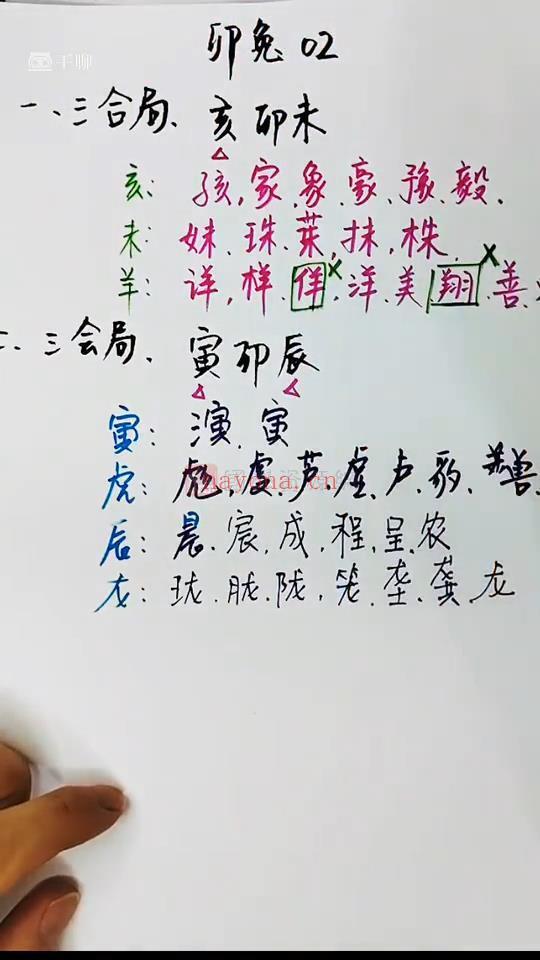 千聊
卯兔02
一、三合局、亥卯未
亥:孩,家,象,豪,豫,毅.
未:妹.珠.茱,抹,株.
羊:详,样,佯x,洋.美,翔x.善.
二、三会局、寅卯辰
寅:演.寅
虎:彪,虞.芦.虚.卢.
辰:晨.宸,成,程,呈,农
龙:珑.胧.陇,笼.垄.龚.龙